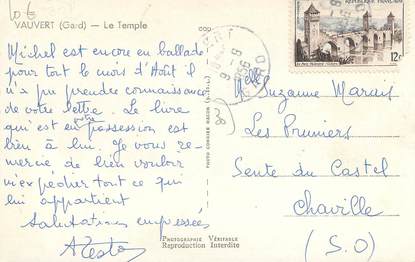 10 €
VAUVERT (Gard) — Le Temple
Michel est encore en ballade
pour tout le mois d'Août il
n'a pu prendre connaissance
de votre lettre. Le livre
qui est en votre possession est
bien à lui. Je vous re-
mercie de bien vouloir
m'expédier tout ce qui
lui appartient
Salutations empressées
PHOTO COMBIER MACON
Photographie Véritable
Reproduction Interdite
POSTES
FRANÇAISE
12F
Melle Suzanne Marais
Les Pruniers
Sente du Castel
Chaville
(S.O)